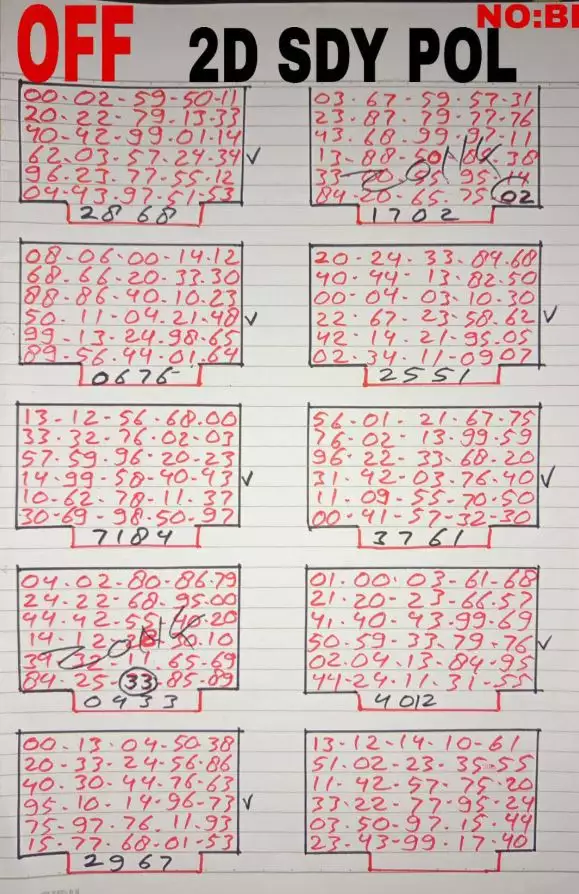 OFF 2D SDY POL NO:BI
00·02-59-50-11
20-22-79-13-33
40-42-99-01-14
62.03-57-24-34 ✓
96-23-77-55-12
04-43-97-51-53
2868
03-67-59-57-31
23-87-79-77-76
43-68-99-97-11
13-88-50 38
33 95
84-20-65-75 02
1702
08-06-00-14.12
68-66-20-33.30
88-86-40.10.23
50.11-04.21.48 ✓
99-13-24.98-65
89-56.44-01.64
0676
20-24-33-84.68
40-44-13-82.50
00-04-03-10.30
22-67-23-58.62 ✓
42-14.21-95.05
02-34-11-09 07
2551
13-12-56-68.00
33-32-76-02-03
57-59-96-20-23
14-99-58-40-43 ✓
10-62-78-11.37
30-69-98-50-97
7184
56-01-21-67-75
76-02-13-99-59
96-22-33-68-20
31-42-03-76-40 ✓
11-09-55-70-50
00-41-57-32-30
3761
04-02-80-86-79
24-22-68-95-00
44-42-55 20
14-12 10
65-69
84-25.33-85-89
0433
01.00.03-61-68
21-20-23-66-57
41.40-43-99-69
50-59-33-79-76 ✓
02.04.13-84-95
44-24-11-31-55
4012
00-13-04-50.38
20-33-24-56-86
40.30-44-76-63
95-10-14-96-73 ✓
75-97-76.11.93
15-77-68-01-53
2967
13-12-14-10-61
51.02-23-35-55
11-42-57-75-20
33-22-77-95-24
03.50-97.15-44
23-43-99.17-40